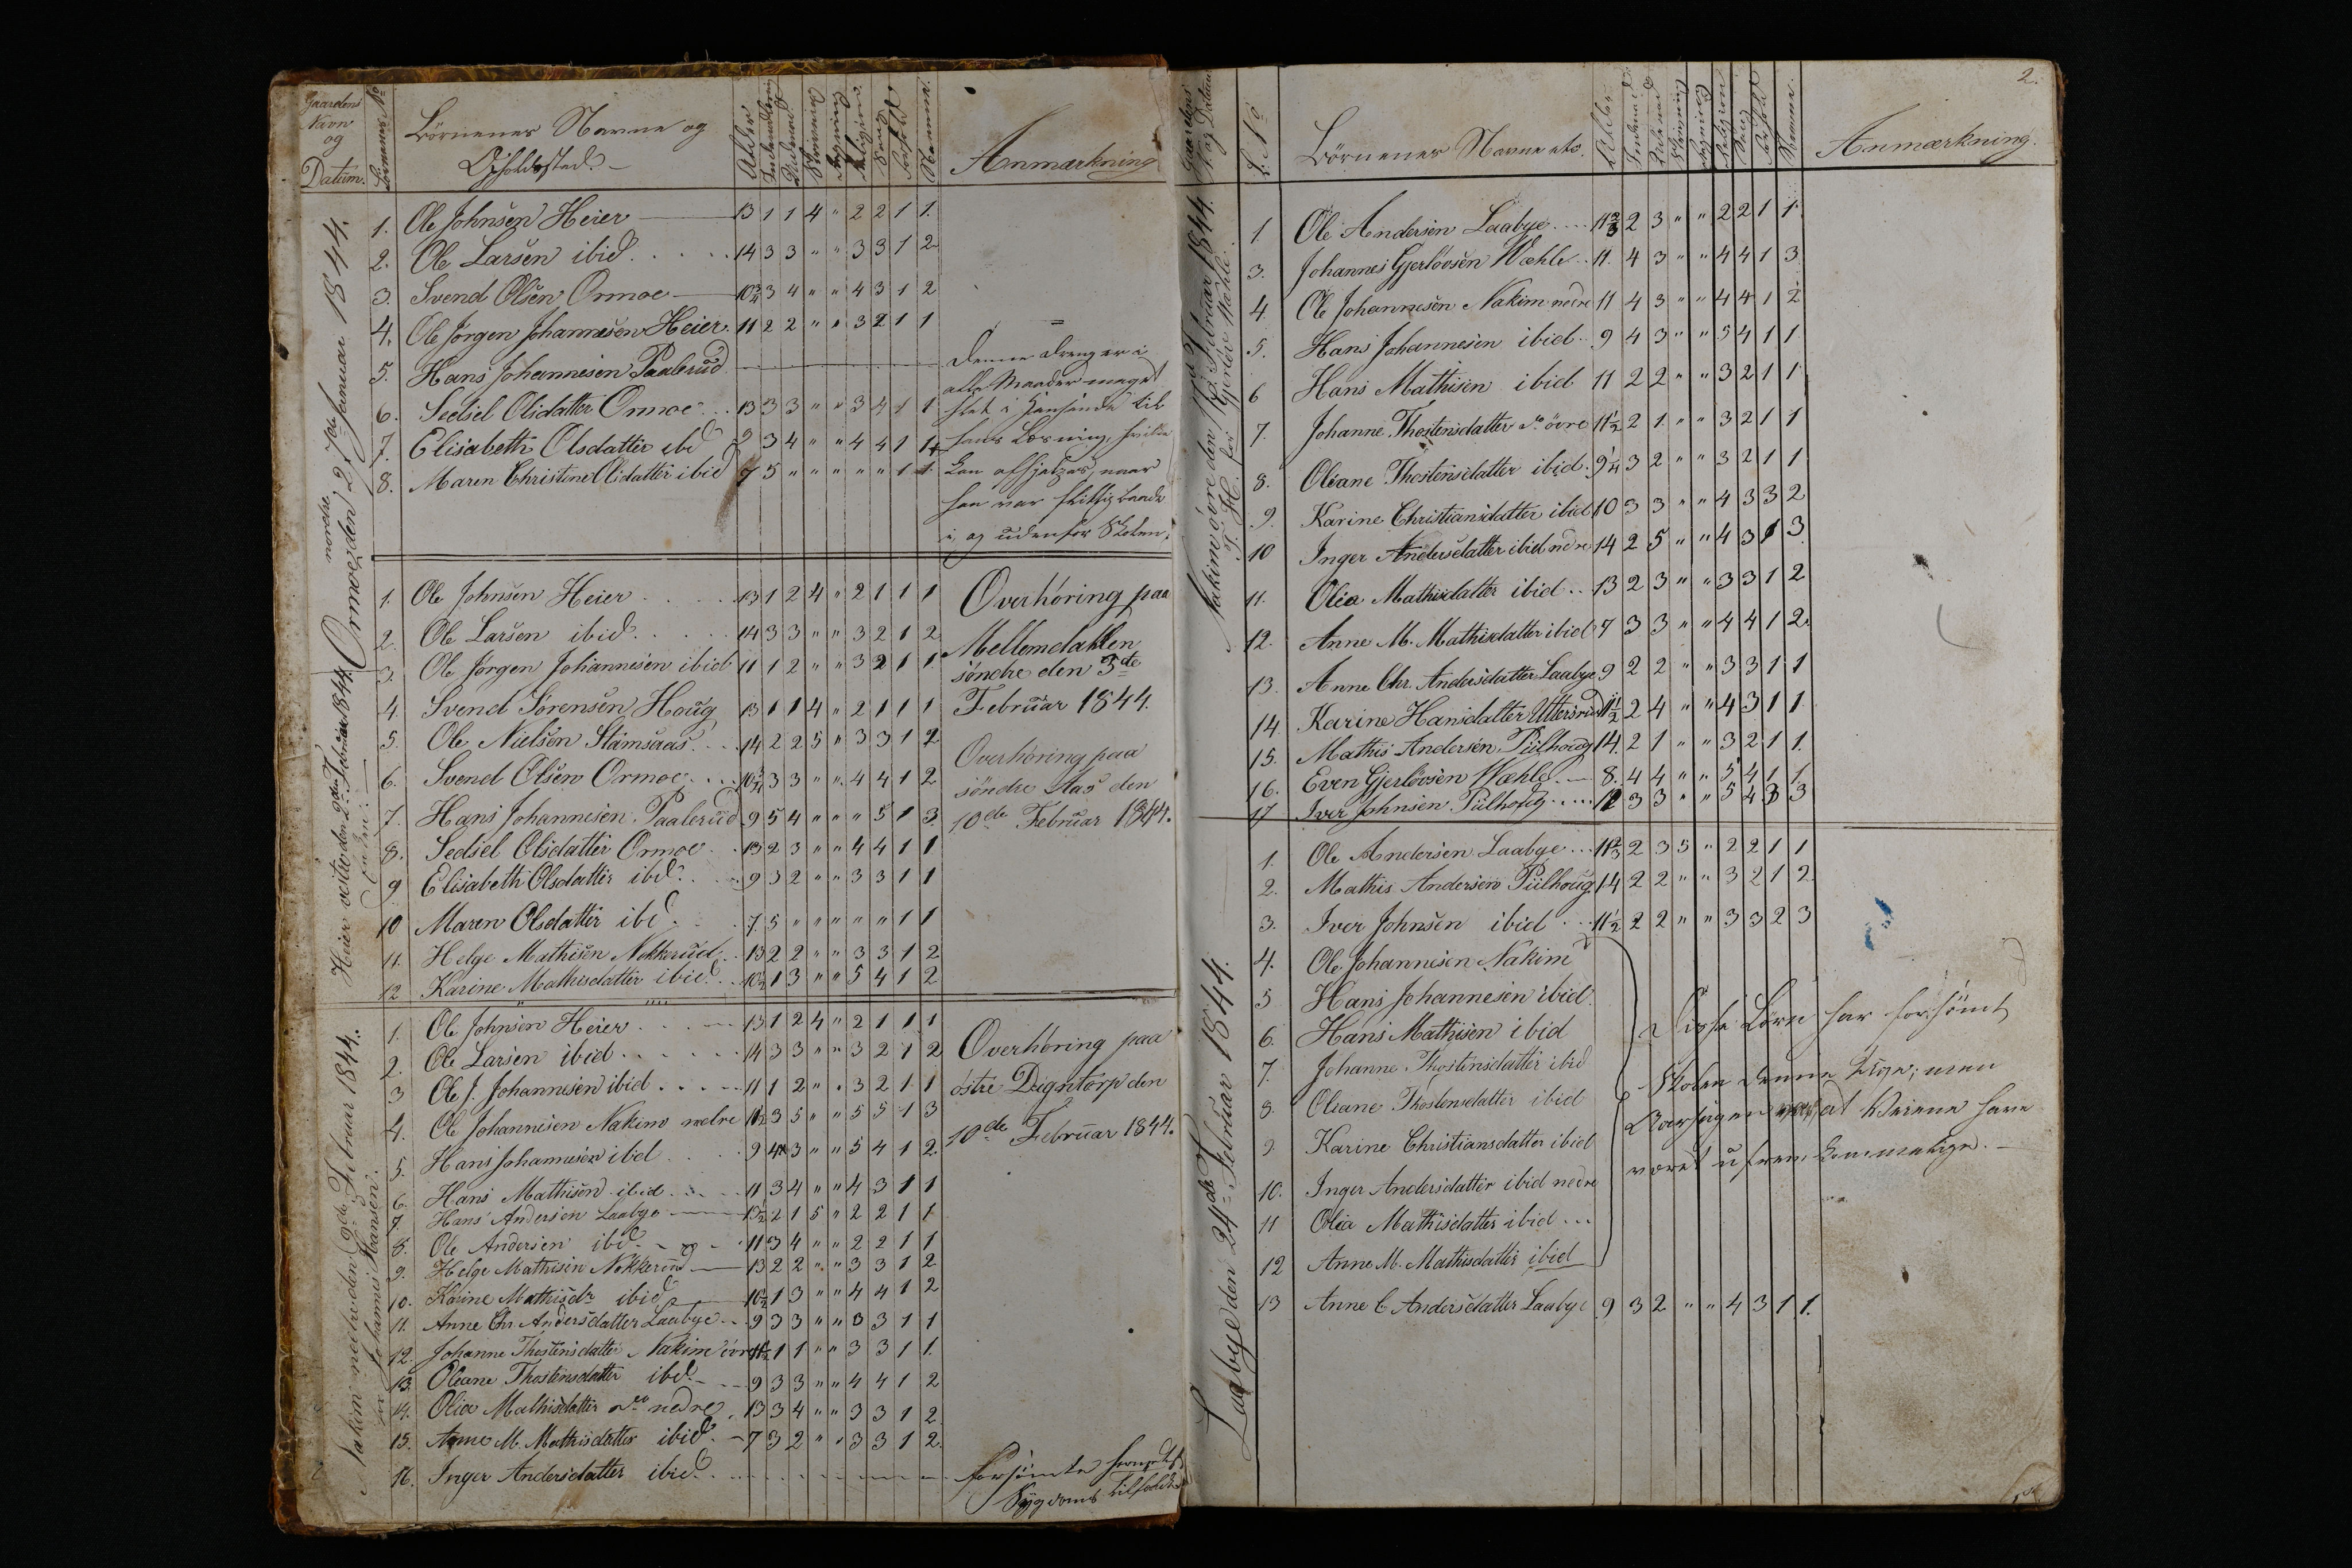 Gaardens
Navn
og
Datum.
Børnenes No
Børnenes Navne og
Opholdssted.
Alder
Religion
Sang
Forhold
Anmærkning
nordre
Ormoe den 27de Januar 1844.
1. Ole Johnsen Heier 13 1 1 4 " 2 2 1 1
2. Ole Larsen ibid. 14 3 3 " " 3 3 1 2
3. Svend Olsen Ormoe 10¾ 3 4 " " 4 3 1 2
4. Ole Jørgen Johannesen Heier 11 2 2 " " 3 2 1 1
5. Hans Johannesen Paalerud
6. Sedsel Olsdatter Ormoe 13 3 3 " " 3 4 1 1
7. Elisabeth Olsdatter ibd 9 3 4 " " 4 4 1 1
8. Maren Christine Olsdatter ibid 7 5 " " " " " 1 1
Denne Dreng er i
alle Maader meget
slet i Henseende til
hans Læsning, hvilke
kan afhjelpes, naar
han var flittig baade
i og udenfor Skolen.
1. Ole Johnsen Heier 13 1 2 4 " 2 1 1 1
2. Ole Larsen ibid. 14 3 3 " " 3 2 1 2
3. Ole Jørgen Johannesen ibid 11 1 2 " " 3 2 1 1
4. Svend Sørensen Houg 13 1 1 4 " 2 1 1 1
5. Ole Nielsen Stamsaas 14 2 2 5 " 3 3 1 2
6. Svend Olsen Ormoe 10¾ 3 3 " " 4 4 1 2
7. Hans Johannesen Paalerud 9 5 4 " " " 5 1 3
8. Sedsel Olsdatter Ormoe 13 2 3 " " 4 4 1 1
9 Elisabeth Olsdatter ibd. 9 3 2 " " 3 3 1 1
10 Maren Olsdatter ibd 7 5 " " " " " 1 1
11. Helge Mathisen Nokkerud 13 2 2 " " 3 3 1 2
12 Karine Mathisdatter ibid. 10½ 1 3 " " 5 4 1 2
Overhøring paa
Mellemdahlen
søndre den 3de
Februar 1844.
Overhøring paa
søndre Aas den
10de Februar 1844.
Nakim nedre den 9de Februar 1844.
for Johannes Hansen.
1. Ole Johnsen Heier 13 1 2 4 " 2 1 1 1
2. Ole Larsen ibid 14 3 3 " " 3 2 1 2
3 Ole J. Johannesen ibid 11 1 2 " " 3 2 1 1
4. Ole Johannesen Nakim nedre 11½ 3 5 " " 5 5 1 3
5. Hans Johannesen ibd 9 4 3 " " 5 4 1 2
6. Hans Mathisen ibid 11 3 4 " " 4 3 1 1
7. Hans Andersen Laabye 13½ 2 1 5 " 2 2 1 1
8. Ole Andersen ibd. 11 3 4 " " 2 2 1 1
9. Helge Mathisen Nokkerud 13 2 2 " " 3 3 1 2
10. Karine Mathisdr ibid 10½ 1 3 " " 4 4 1 2
11. Anne Chr. Andersdatter Laabye 9 3 3 " " 3 3 1 1
12. Johanne Thostensdatter Nakim övre 11½ 1 1 " " 3 3 1 1
13. Oleane Thostensdatter ibd. 9 3 3 " " 4 4 1 2
14. Olia Mathisdatter do nedre 13 3 4 " " 3 3 1 2
15. Anne M. Mathisdatter ibid. 7 3 2 " " 3 3 1 2
16. Inger Andersdatter ibid.
Overhøring paa
östre Digstorp den
10de Februar 1844.
forsömte formedelst
Sygdoms Tilfælde
2.
Gaardens
N. og Datum
L. No
Börnenes Navne etc.
Alder
Religion
Sang
Anmærkning.
Nakim övre den 17de Februar 1844.
1. Ole Andersen Laabye 11⅔ 2 3 " " 2 2 1 1
3. Johannes Gjerlövsen Wæhle 11 4 3 " " 4 4 1 3
4 Ole Johannesen Nakim nedre 11 4 3 " " 4 4 1 2
5. Hans Johannesen ibid 9 4 3 " " 5 4 1 1
6 Hans Mathisen ibid 11 2 2 " " 3 2 1 1
7. Johanne Thostensdatter do övre 11½ 2 1 " " 3 2 1 1
8. Oleane Thostensdatter ibid. 9¼ 3 2 " " 3 2 1 1
9. Karine Christiansdatter ibid 10 3 3 " " 4 3 3 2
10 Inger Andersdatter ibid nedre 14 2 5 " " 4 3 1 3
11. Olea Mathisdatter ibid 13 2 3 " " 3 3 1 2
12. Anne M. Mathisdatter ibid 7 3 3 " " 4 4 1 2
13. Anne Chr. Andersdatter Laabye 9 2 2 " " 3 3 1 1
14 Karine Hansdatter Uttersrud 11½ 2 4 " " 4 3 1 1
15. Mathis Andersen Pülhoug 14 2 1 " " 3 2 1 1
16. Even Gjerlövsen Wæhle 8 4 4 " " 5 4 1 1
17 Iver Johnsen Pülhoug 12 3 3 " " 5 4 3 3
Laabye den 24de Februar 1844.
1. Ole Andersen Laabye 11⅔ 2 3 5 " 2 2 1 1
2. Mathis Andersen Pülhoug 14 2 2 " " 3 2 1 2
3. Iver Johnsen ibid 11½ 2 2 " " 3 3 2 3
4. Ole Johannesen Nakim
5 Hans Johannesen ibid.
6. Hans Mathisen ibid
7. Johanne Thostensdatter ibid
8. Oleane Thostensdatter ibid
9. Karine Christiansdatter ibid
10. Inger Andersdatter ibid nedre
11 Olea Mathisdatter ibid
12 Anne M. Mathisdatter ibid
13 Anne C Andersdatter Laabye 9 3 2 " " 4 3 1 1
Disse Börn har forsömt
Skolen denne Uge; men
Aarsagen at Veiene have
været ufremkommelige.